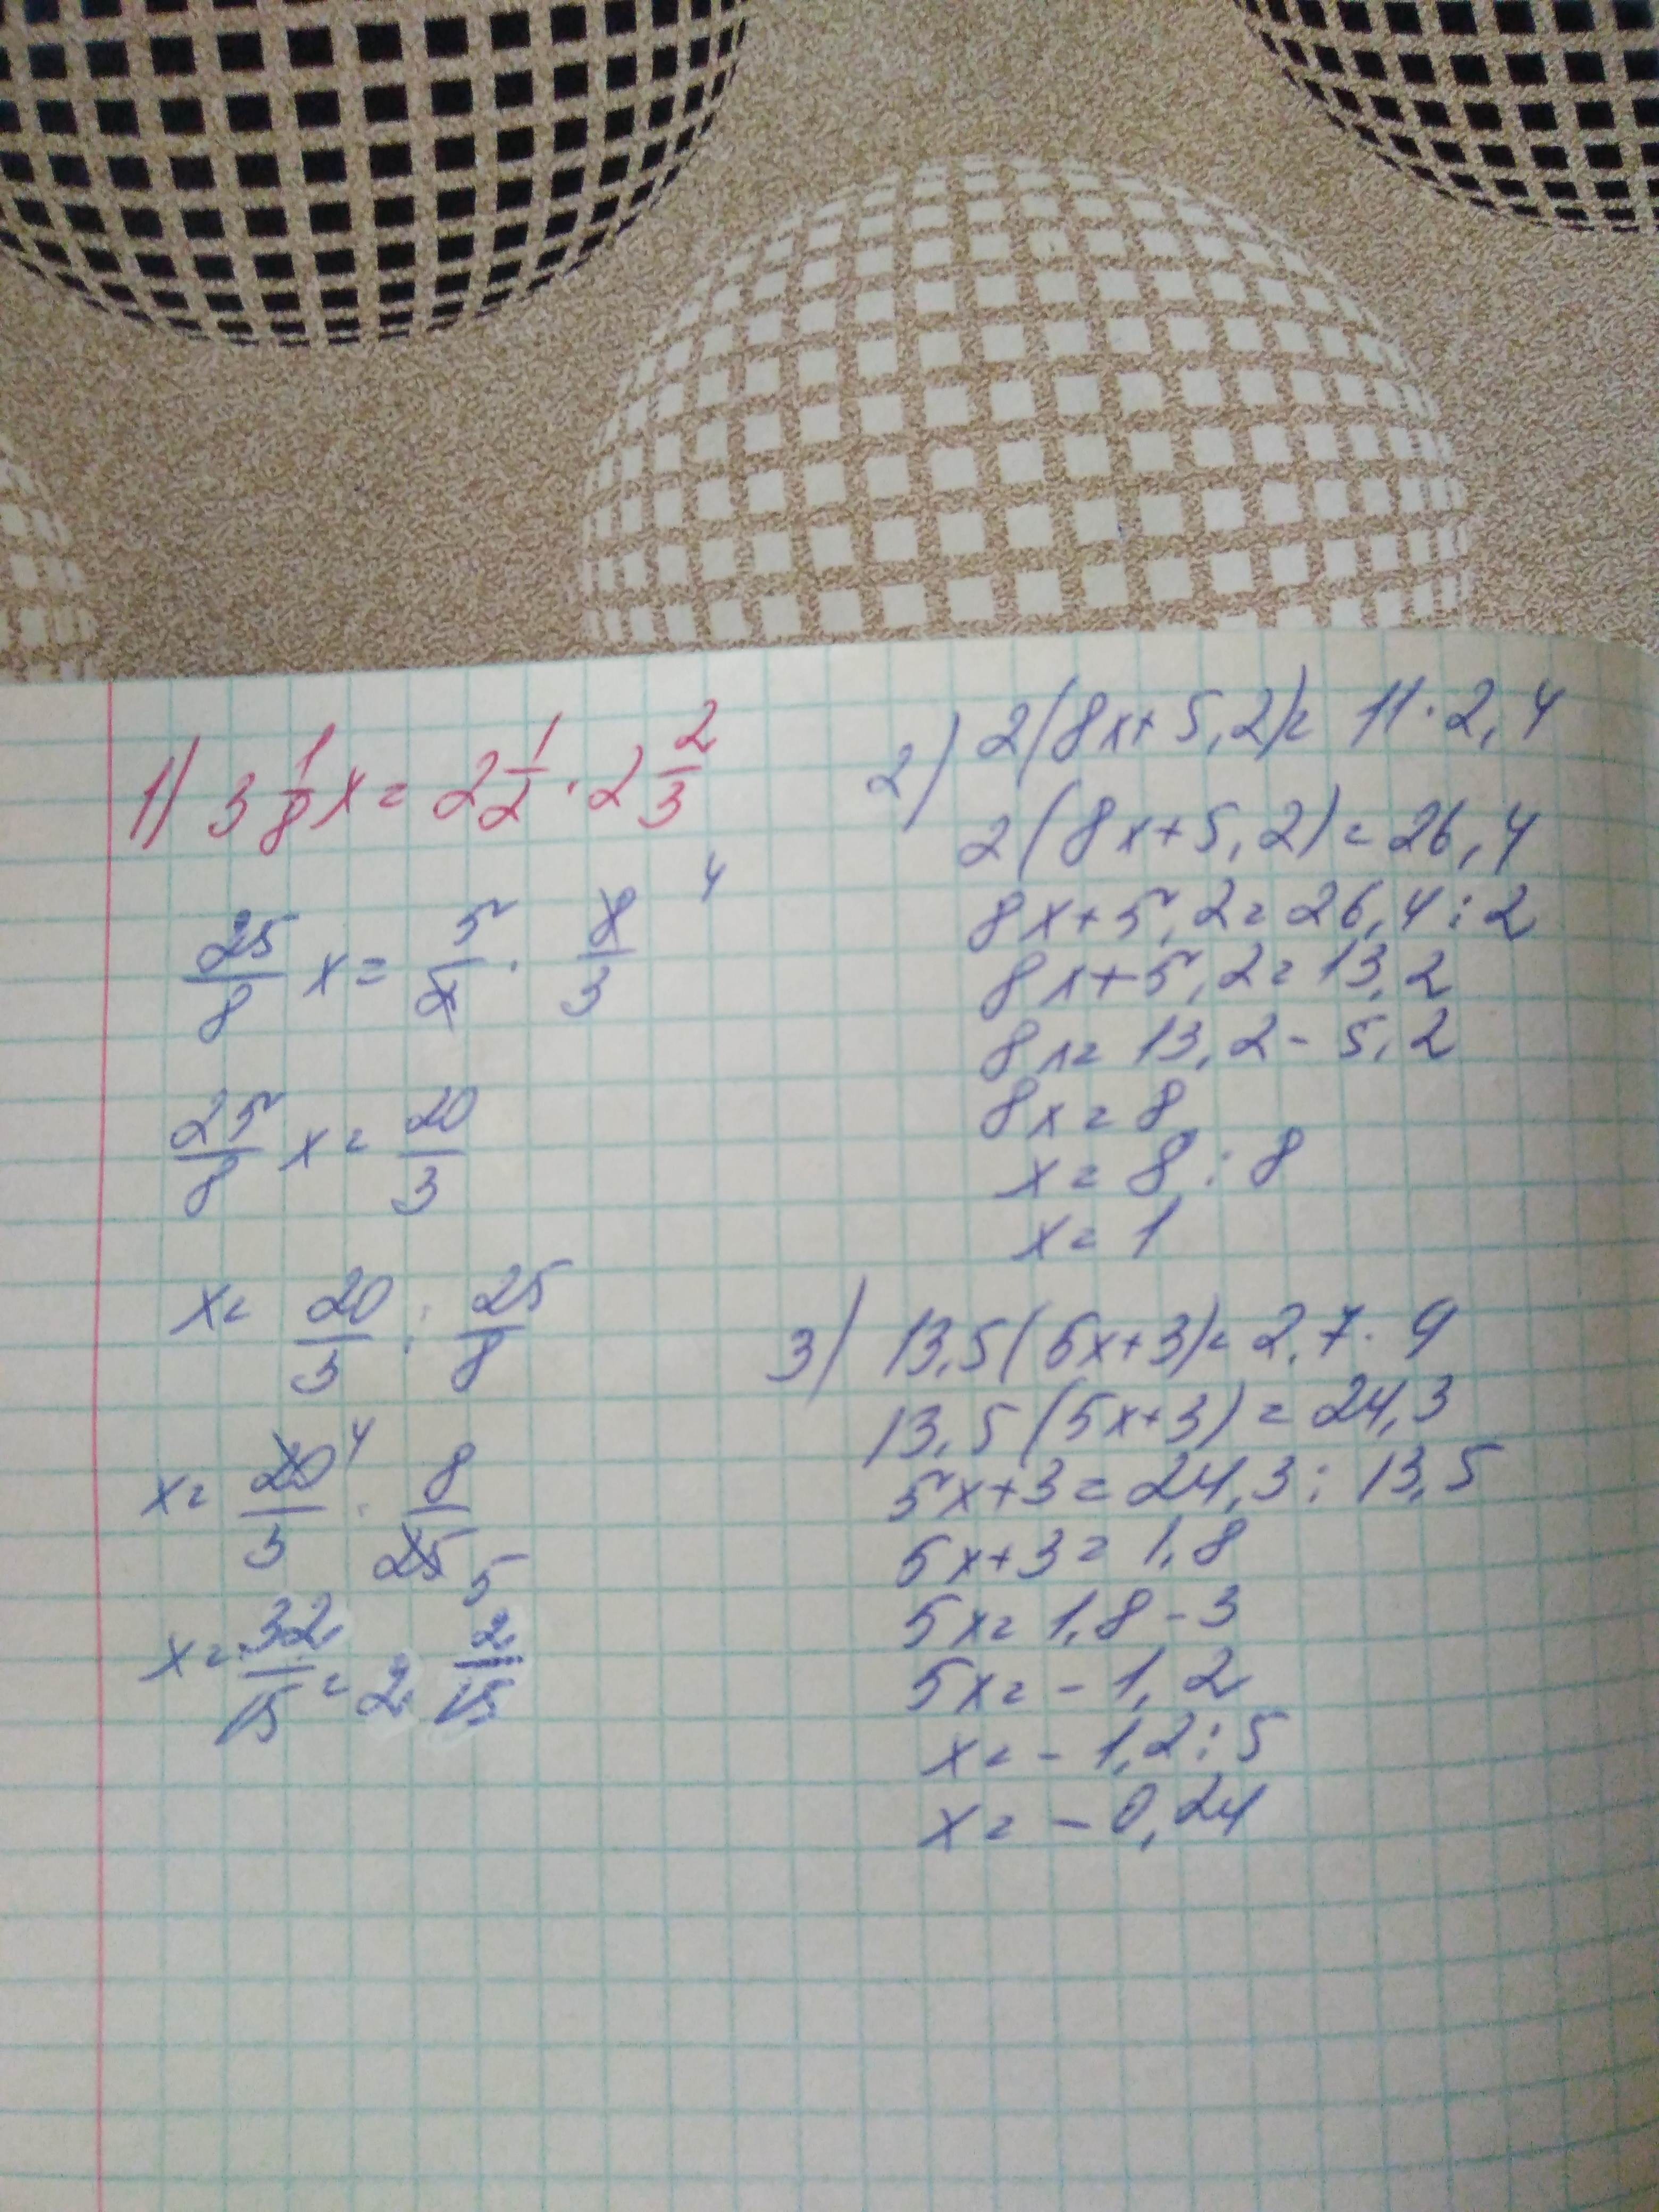 1) 3 1/8 x = 2 1/2 · 2 2/3
25/8 x = 5/2 · 8/3 4
25/8 x = 20/3
x = 20/3 : 25/8
x = 20/3 4 · 8/25 5
x = 32/15 = 2 2/15
2) 2(8x+5,2) = 11·2,4
2(8x+5,2) = 26,4
8x+5,2 = 26,4:2
8x+5,2 = 13,2
8x = 13,2 - 5,2
8x = 8
x = 8:8
x = 1
3) 13,5(5x+3) = 2,7·9
13,5(5x+3) = 24,3
5x+3 = 24,3:13,5
5x+3 = 1,8
5x = 1,8-3
5x = -1,2
x = -1,2:5
x = -0,24